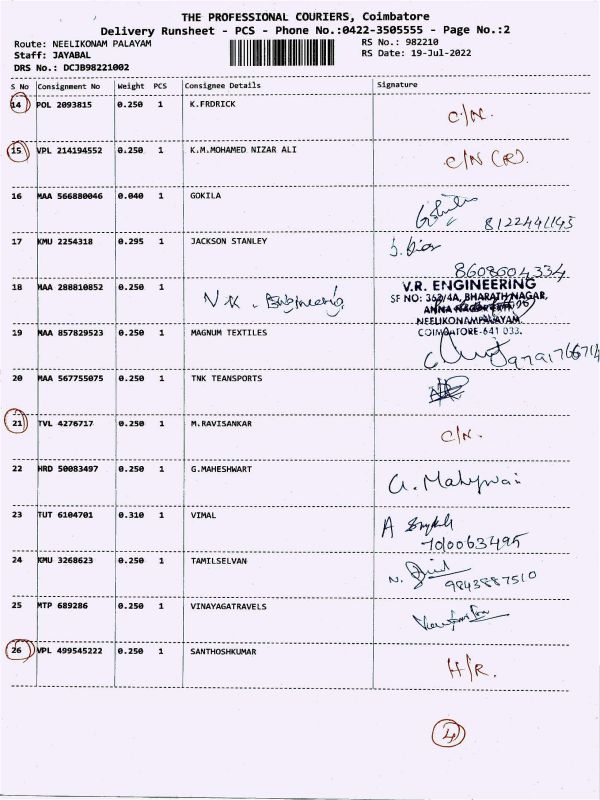 THE PROFESSIONAL COURIERS, Coimbatore
Delivery Runsheet - PCS - Phone No.:0422-3505555 - Page No.:2
Route: NEELIKONAM PALAYAM
RS No.: 982210
Staff: JAYABAL
RS Date: 19-Jul-2022
DRS No.: DCJB98221002
S No Consignment No Weight PCS Consignee Details Signature
14 POL 2093815 0.250 1 K.FRDRICK C/N.
15 VPL 214194552 0.250 1 K.M.MOHAMED NIZAR ALI C/N (R).
16 MAA 566880046 0.040 1 GOKILA
8122441145
17 KMU 2254318 0.295 1 JACKSON STANLEY
8608604334
18 MAA 288810852 0.250 1 V.R. Engineering V.R. ENGINEERING
SF NO: 362/4A, BHARATH NAGAR,
NEELIKONAMPALAYAM,
COIMBATORE-641 033.
19 MAA 857829523 0.250 1 MAGNUM TEXTILES
20 MAA 567755075 0.250 1 TNK TEANSPORTS
21 TVL 4276717 0.250 1 M.RAVISANKAR C/N.
22 HRD 50083497 0.250 1 G.MAHESHWART
23 TUT 6104701 0.310 1 VIMAL
7010063495
24 KMU 3268623 0.250 1 TAMILSELVAN
9843887510
25 MTP 689286 0.250 1 VINAYAGATRAVELS
26 VPL 499545222 0.250 1 SANTHOSHKUMAR H/R.
4